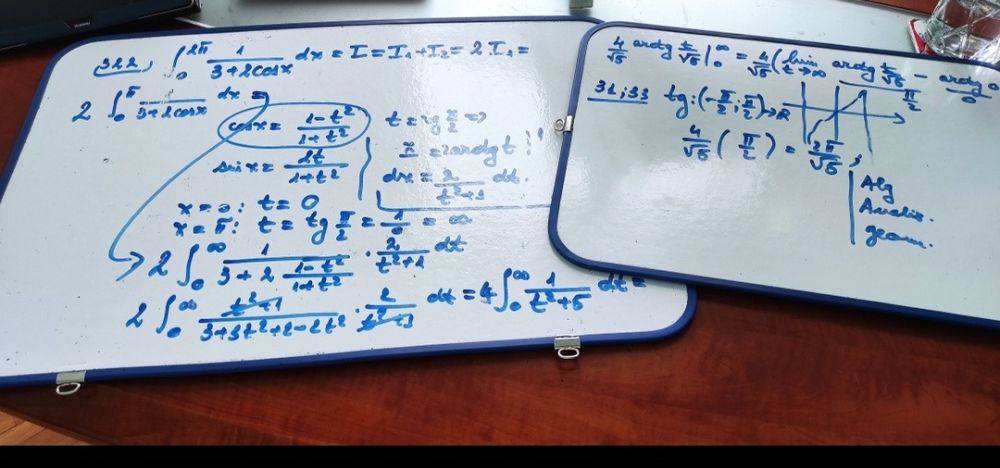 322. ∫₀^{2π} 1/(3+2cosx) dx = I = I₁+I₂ = 2I₁ =
2 ∫₀^π 1/(3+2cosx) dx =
cosx = (1-t²)/(1+t²)
t = tg x/2 =>
sinx = 2t/(1+t²)
x = 2arctg t
dx = 2/(t²+1) dt.
x = 0: t = 0
x = π: t = tg π/2 = 1/0 = ∞
2 ∫₀^∞ 1/(3+2 (1-t²)/(1+t²)) · 2/(t²+1) dt
2 ∫₀^∞ (t²+1)/(3+3t²+2-2t²) · 2/(t²+1) dt = 4 ∫₀^∞ 1/(t²+5) dt =
4/√5 arctg t/√5 |₀^∞ = 4/√5 (lim t→∞ arctg t/√5 - arctg 0
π/2
0
31; 33 tg: (-π/2; π/2) → R
4/√5 (π/2) = 2π/√5;
Alg
Analiz.
geom.